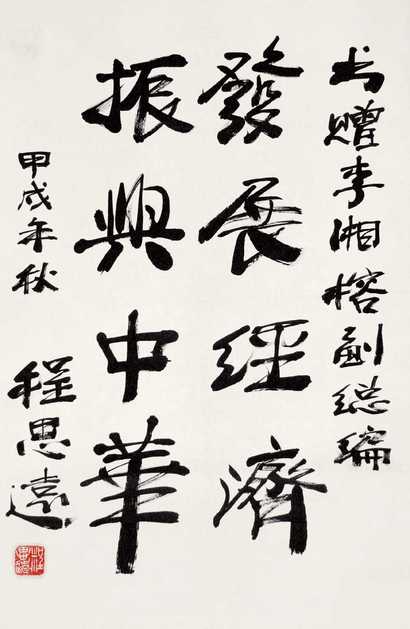 书赠李湘榕副总编
發展經濟
振興中華
甲戌年秋
程思遠